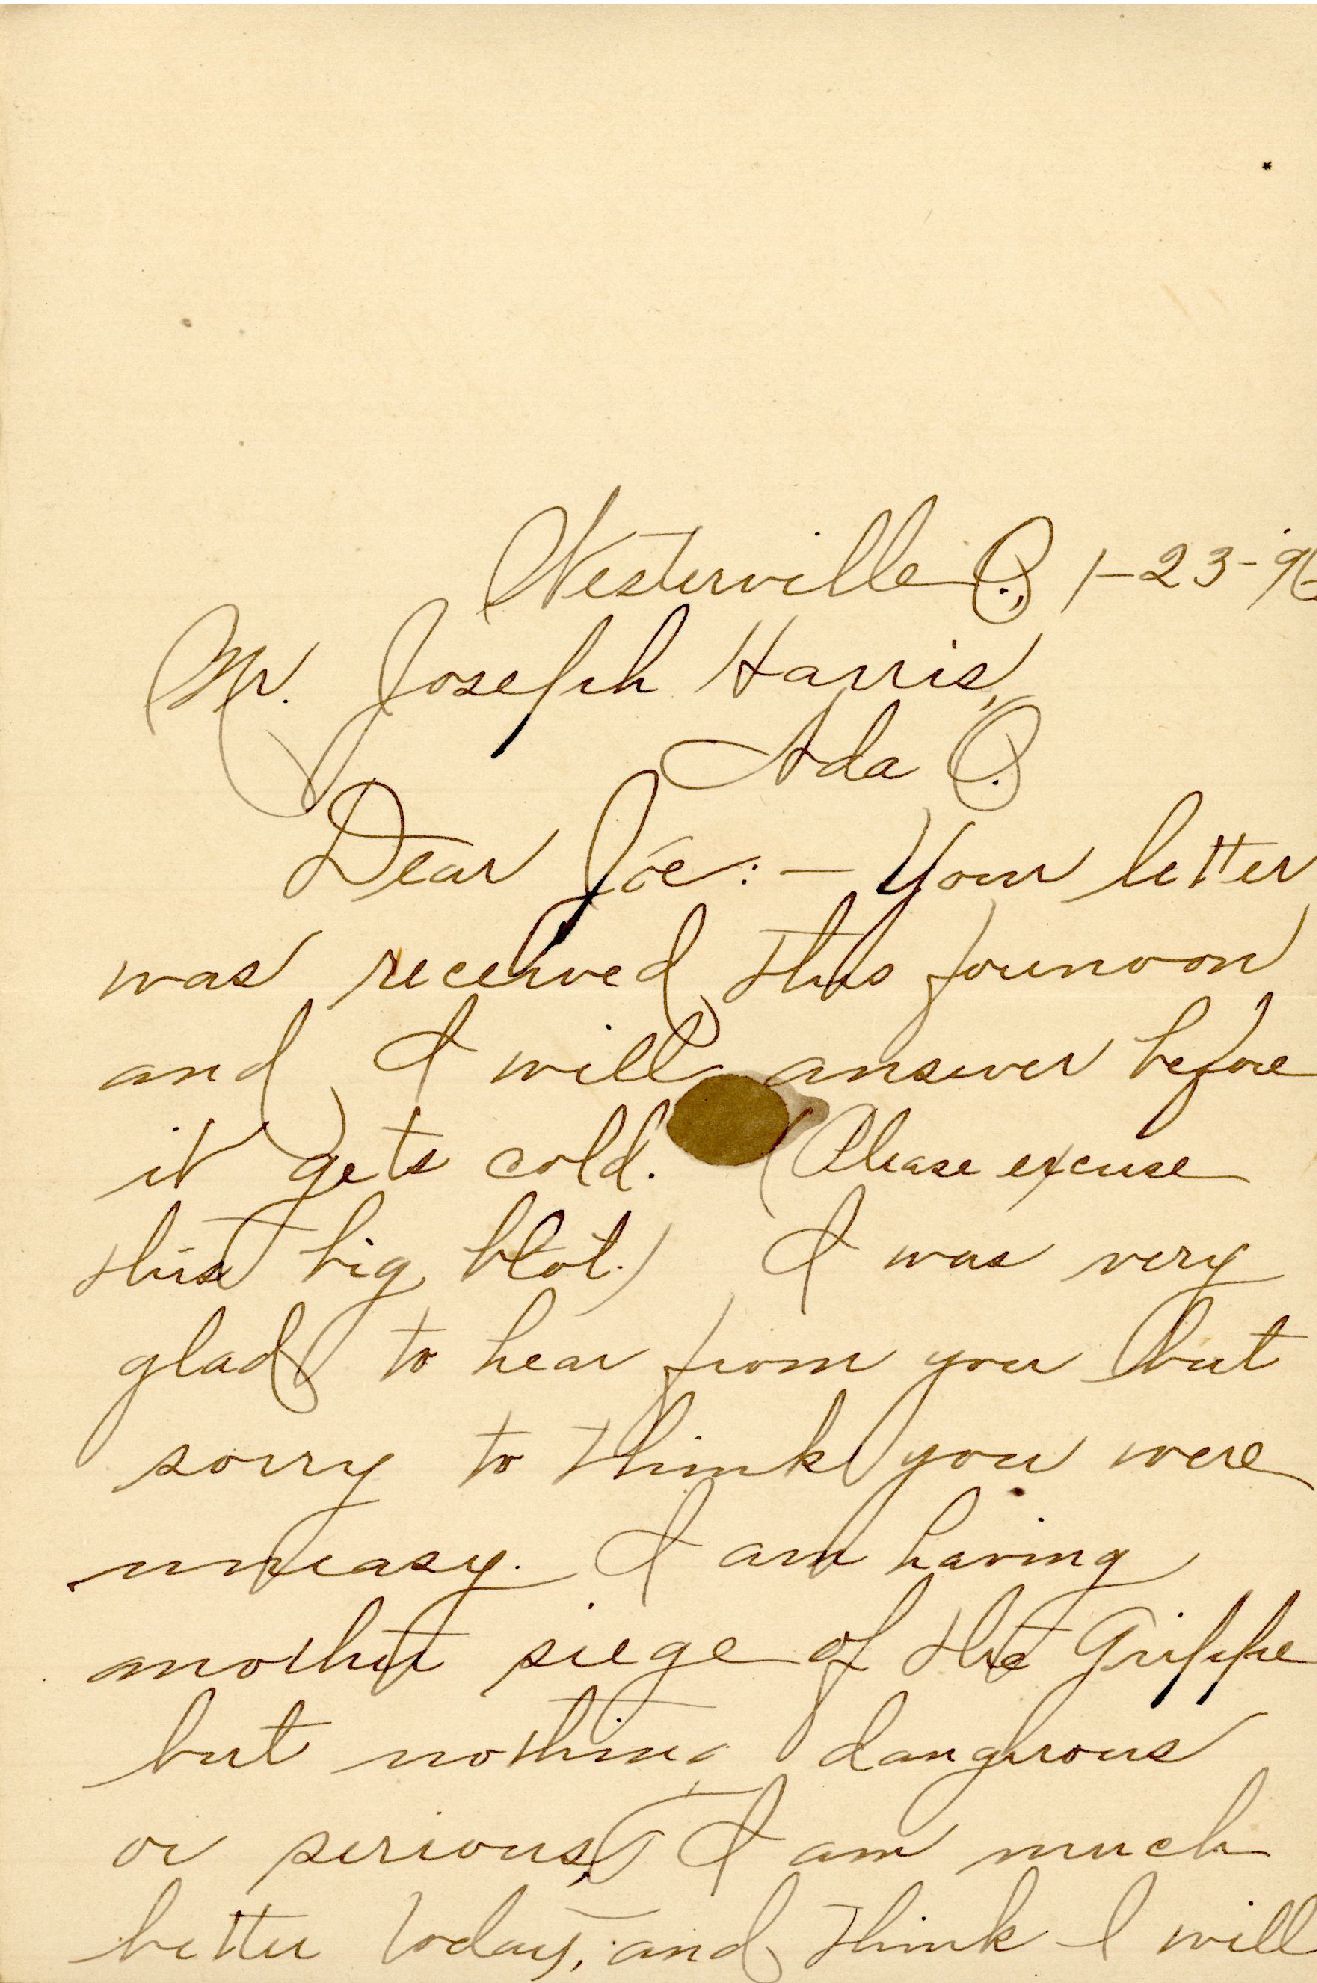 Westerville O., 1-23-'96
Mr. Joseph Harris,
Ada O.
Dear Joe:- Your letter
was received this forenoon
and I will answer before
it gets cold. (Please excuse
this big blot.) I was very
glad to hear from you but
sorry to think you were
uneasy. I am having
another siege of the Grippe
but nothing dangerous
or serious, I am much
better today, and think I will